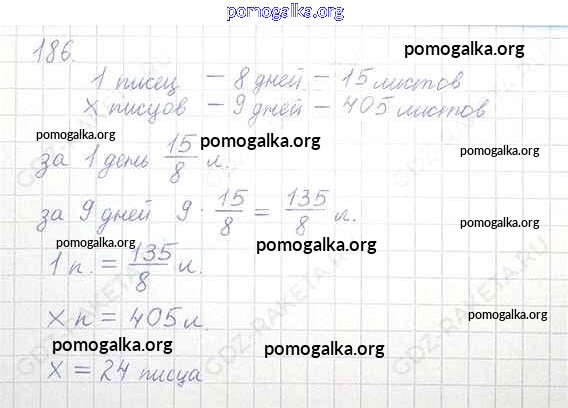 pomogalka.org
186. pomogalka.org
1 писец – 8 дней – 15 листов
x писцов – 9 дней – 405 листов
pomogalka.org pomogalka.org
за 1 день 15/8 л. pomogalka.org
за 9 дней 9 · 15/8 = 135/8 л. pomogalka.org
pomogalka.org pomogalka.org
1 п. = 135/8 л.
x п = 405 л. pomogalka.org
pomogalka.org pomogalka.org
x = 24 писца
GDZ-RAKETA.RU